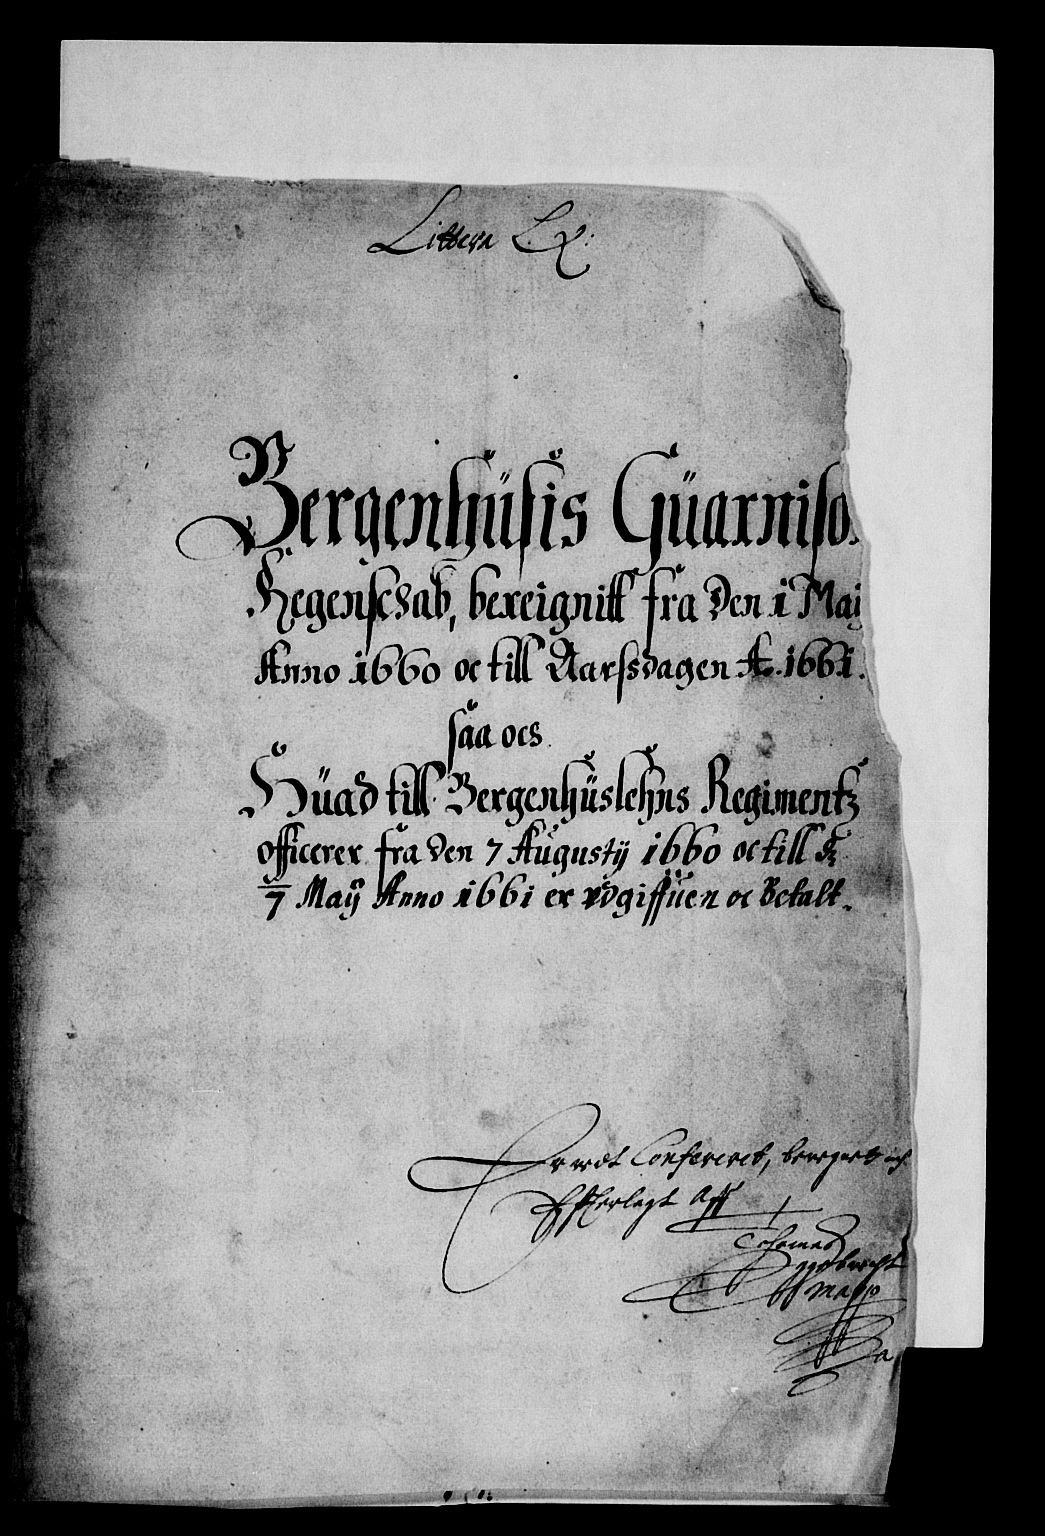 Littera L.
Bergenhüsis Güarniso
Regenschab, bereignitt fra den 1 Maij
Anno 1660 oc till Aarssdagen Ao. 1661.
saa ocs
Hüad till Bergenhüslehns Regimentz
officerer fra den 7 Augustij 1660 oc till d
7 Maij Anno 1661 er vdgiffüen oc Betalt.
Er Confereret,
Efterlagt Aff